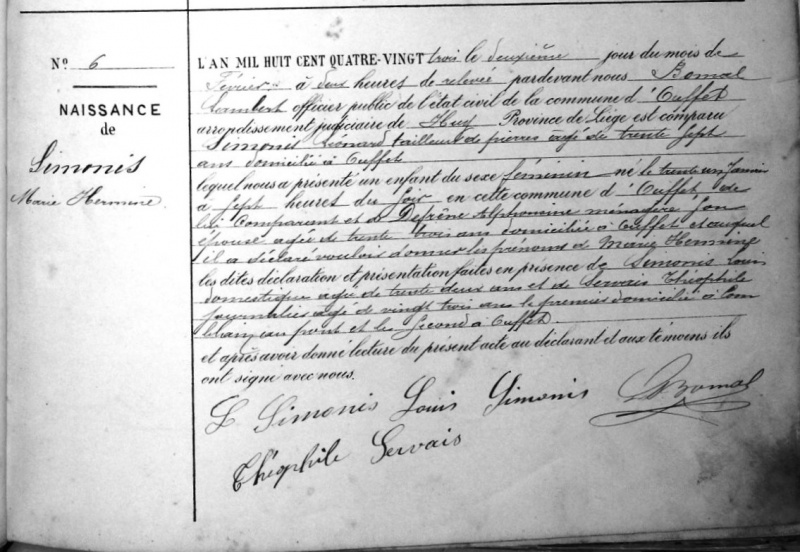 N° 6
NAISSANCE
de
Simonis
Marie Hermine
L'AN MIL HUIT CENT QUATRE-VINGT trois le deuxième jour du mois de
Février à deux heures de relevée pardevant nous Bomal
Lambert officier public de l'état civil de la commune d'Ouffet
arrondissement judiciaire de Huy Province de Liège est comparu
Simonis Léonard tailleur de pierres âgé de trente sept
ans domicilié à Ouffet
lequel nous a présenté un enfant du sexe féminin né le trente un Janvier
à sept heures du soir en cette commune d'Ouffet de
lui Comparant et de Defrêne Alphonsine ménagère son
épouse agée de trente trois ans domiciliée à Ouffet et auquel
il a déclaré vouloir donner les prénoms de Marie Hermine
les dites déclaration et présentation faites en présence de Simonis Louis
domestique agé de trente deux ans et de Servais Théophile
journalier agé de vingt trois ans le premier domicilié à Com
blain au pont et le second à Ouffet
et après avoir donné lecture du présent acte au déclarant et aux témoins ils
ont signé avec nous.
L Simonis Louis Simonis L Bomal
Théophile Servais